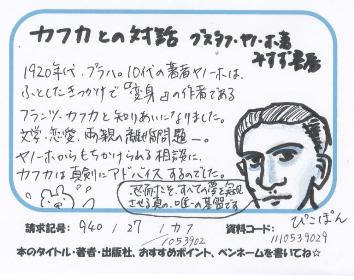 カフカとの対話 グスタフ・ヤノーホ著
みすず書房
1920年代、プラハ。10代の著者ヤノーホは、
ふとしたきっかけで『変身』の作者である
フランツ・カフカと知りあいになりました。
文学・恋愛・両親の離婚問題―。
ヤノーホからもちかけられる相談に、
カフカは真剣にアドバイスするのでした。
させる真の、唯一の基習です
ぴこぽん
請求記号: 940 / 27 / カフ 資料コード:
1053902 1110539029
本のタイトル・著者・出版社、おすすめポイント、ペンネームを書いてね☆